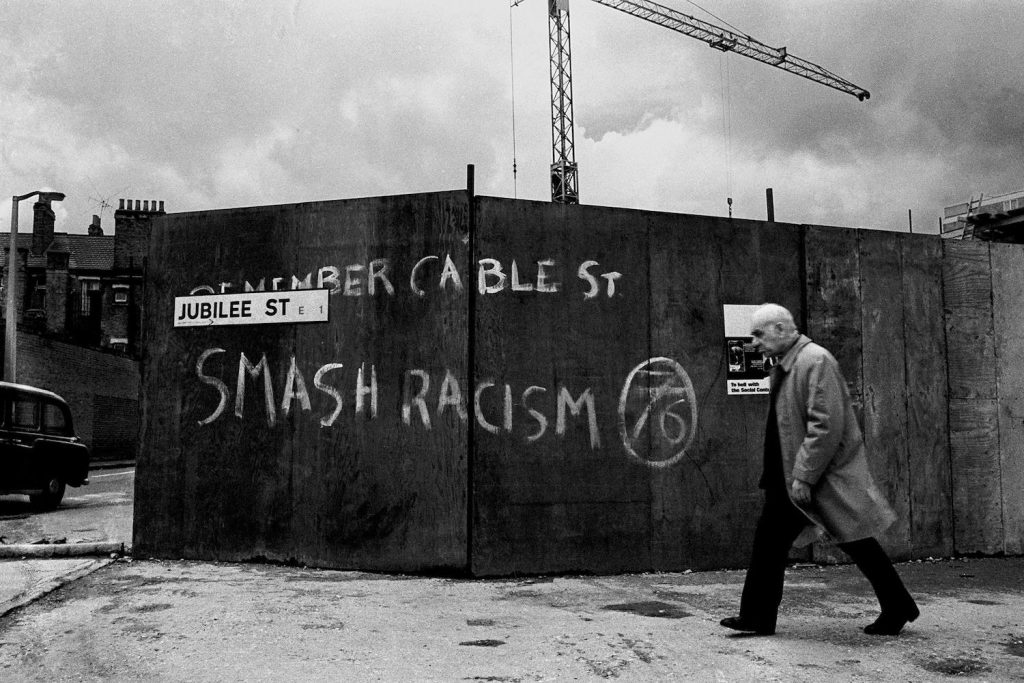 REMEMBER CABLE ST
JUBILEE ST E 1
SMASH RACISM
76
To hell with
the Social